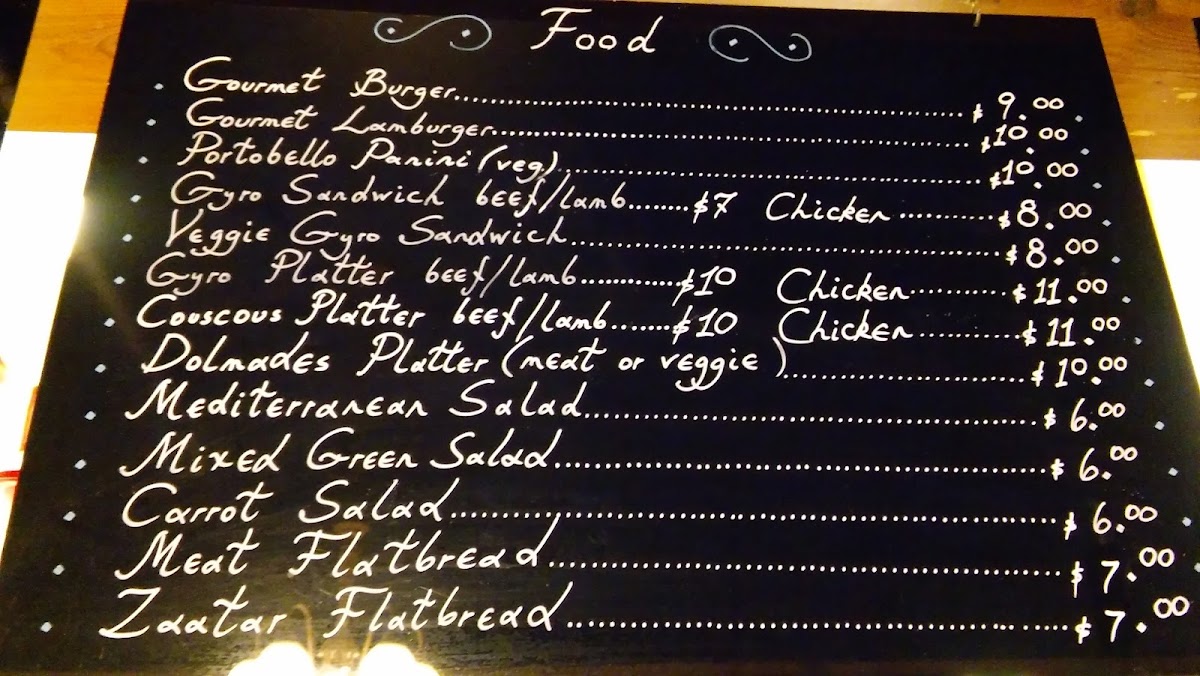 Food
Gourmet Burger.............................. $9.00
Gourmet Lamburger.............................. $10.00
Portobello Panini (veg.).............................. $10.00
Gyro Sandwich beef/lamb........$7 Chicken............$8.00
Veggie Gyro Sandwich..............................$8.00
Gyro Platter beef/lamb..............$10 Chicken...........$11.00
Couscous Platter beef/lamb........$10 Chicken............$11.00
Dolmades Platter (meat or veggie)..............................$10.00
Mediterranean Salad..............................$6.00
Mixed Green Salad..............................$6.00
Carrot Salad..............................$6.00
Meat Flatbread..............................$7.00
Zaatar Flatbread..............................$7.00